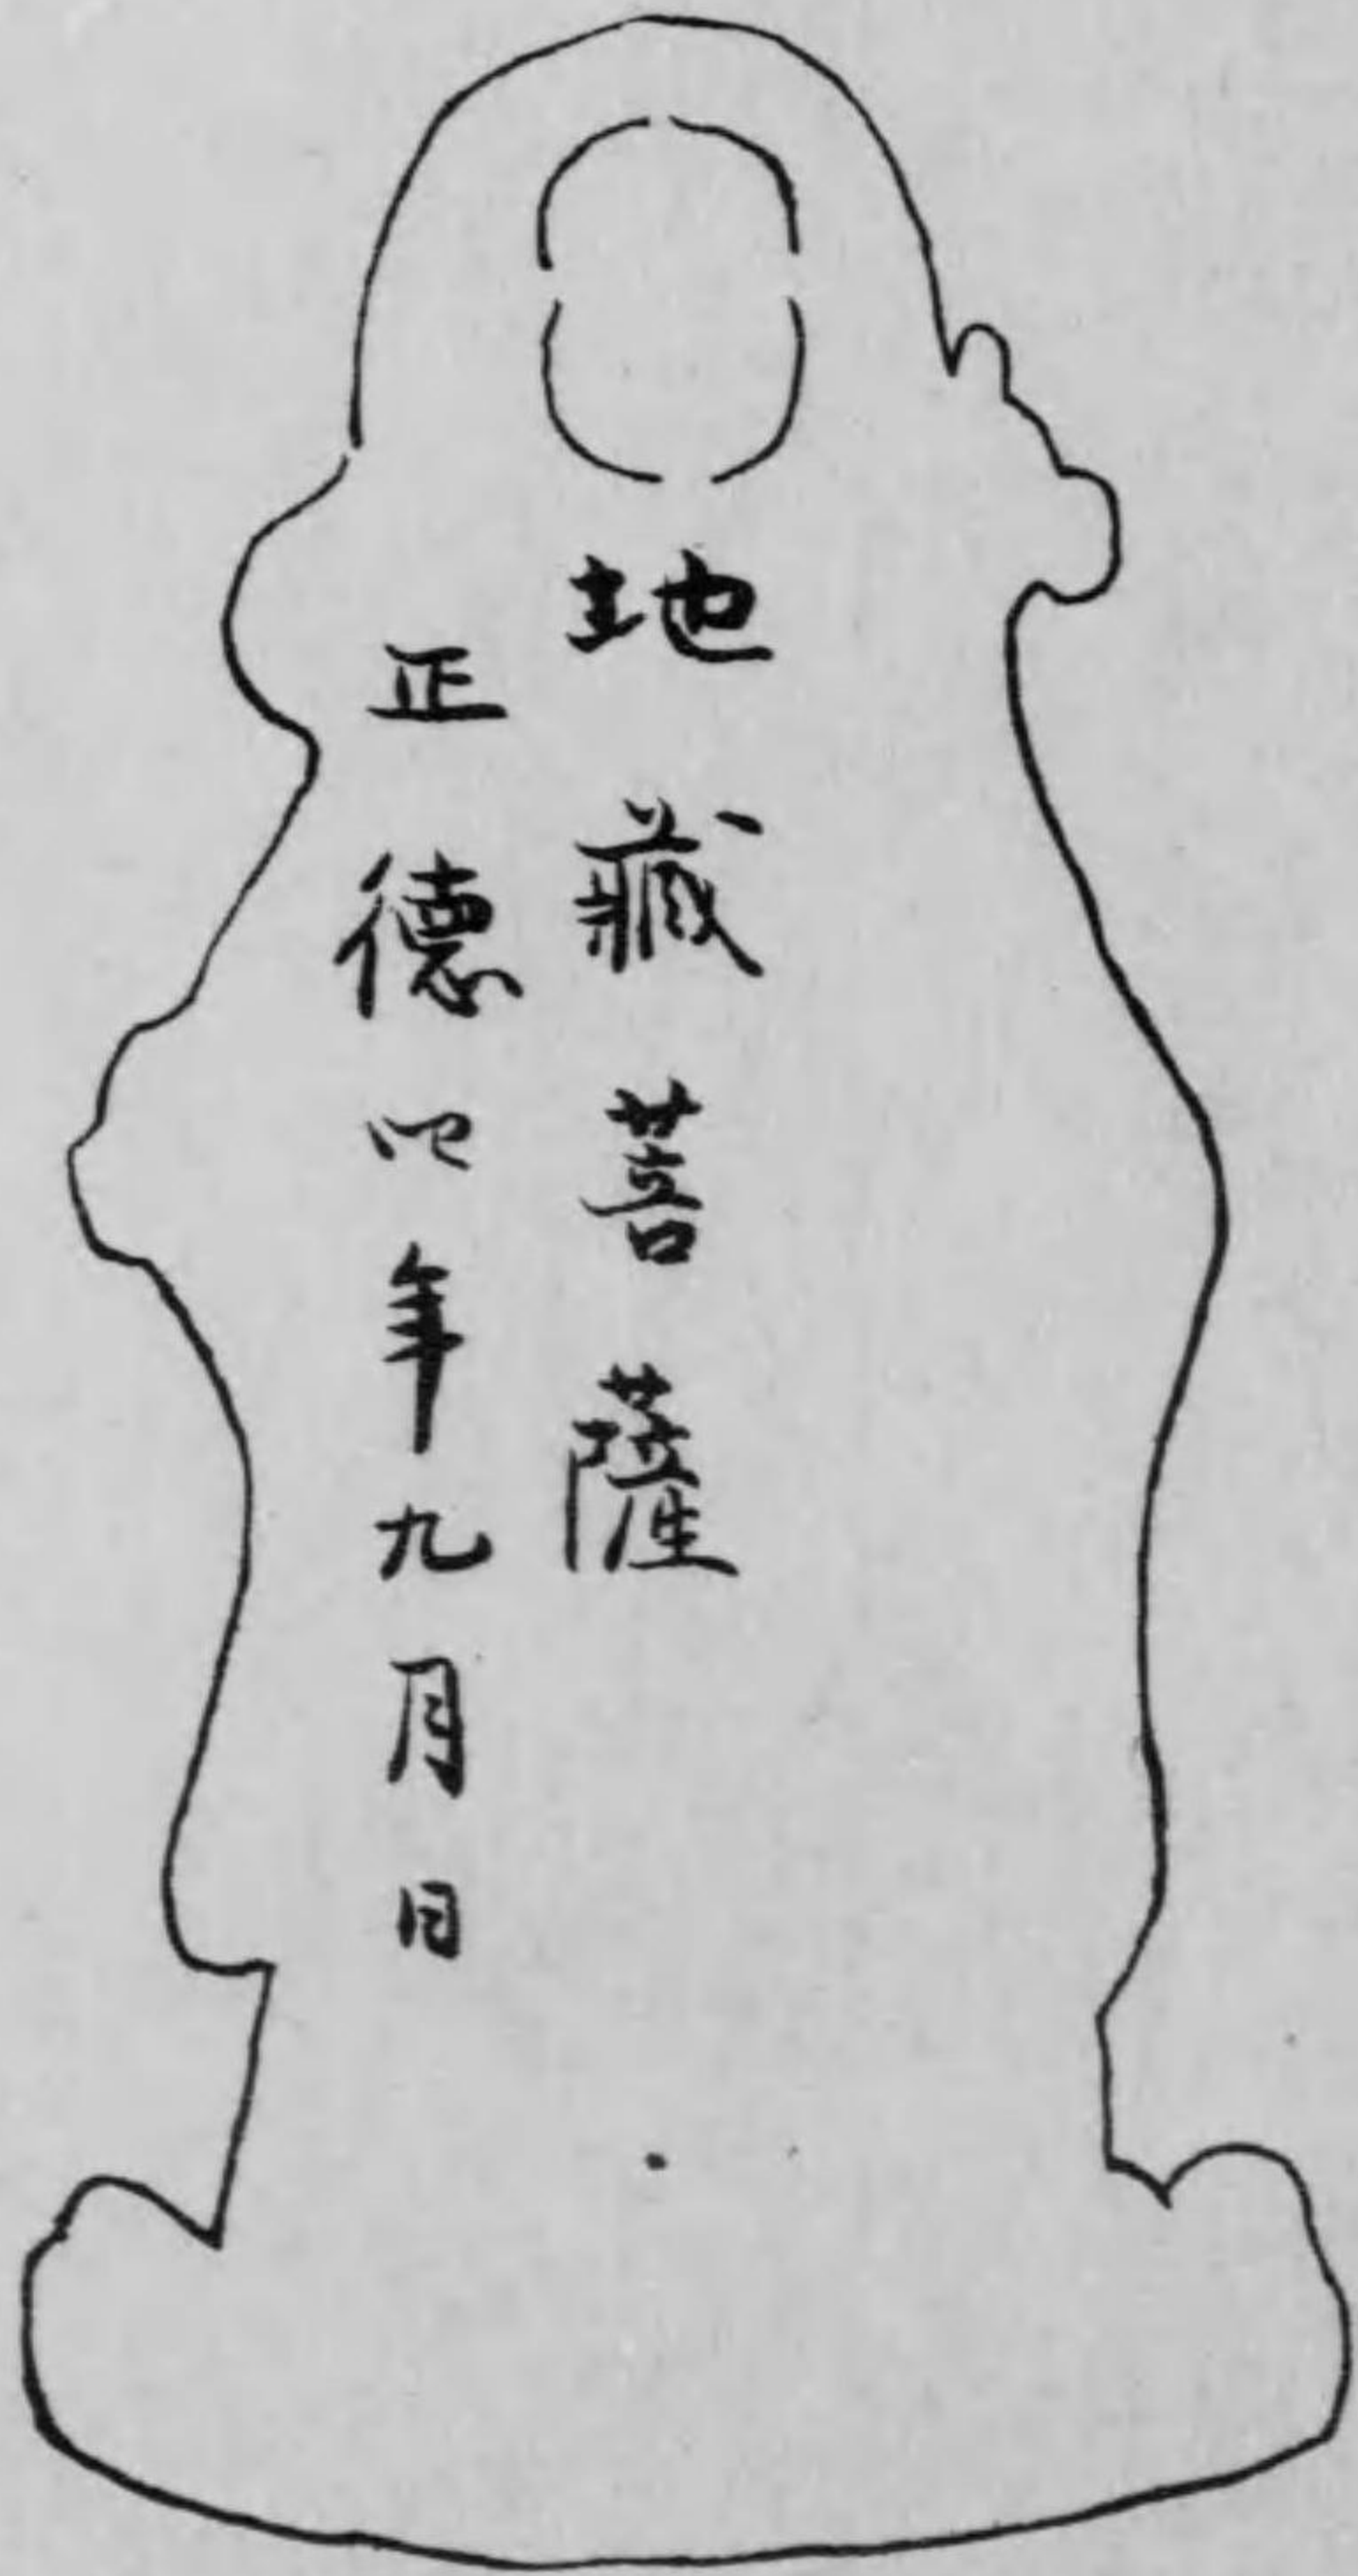 地藏菩薩
正德四年九月日